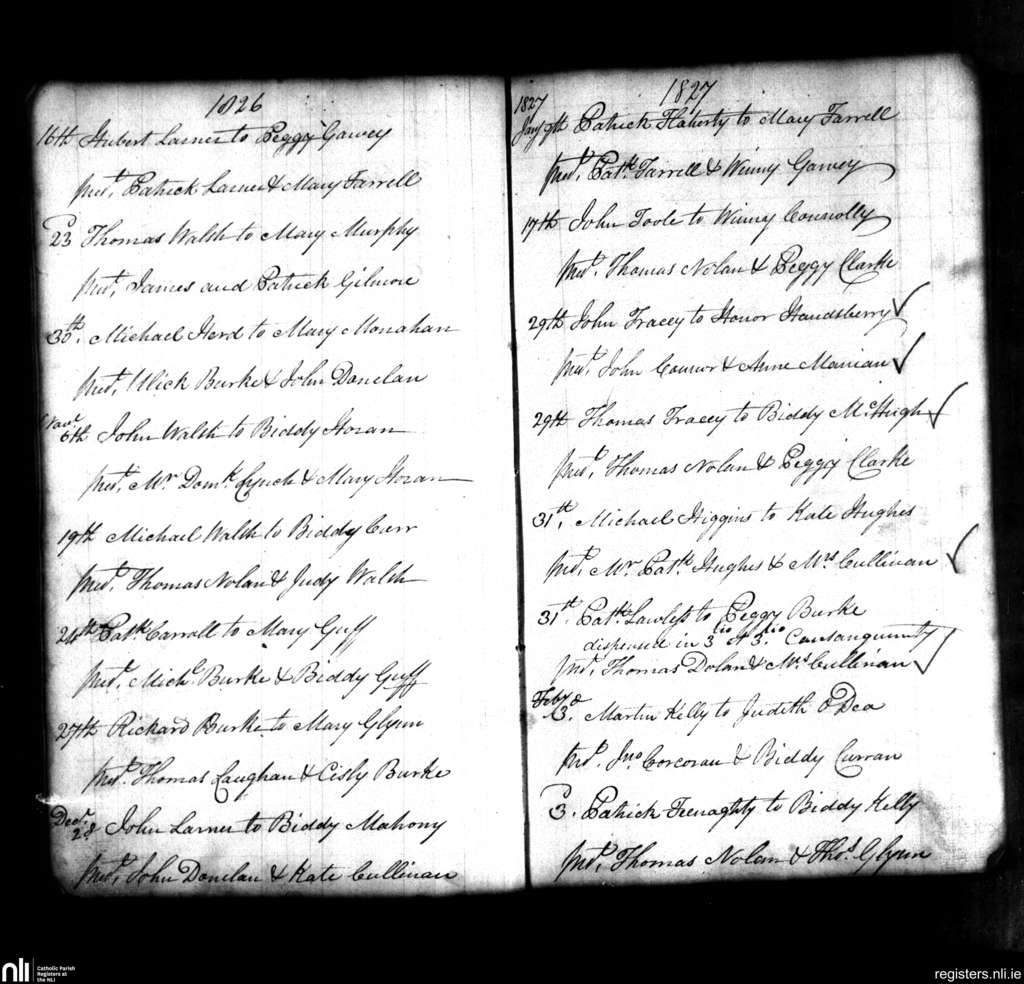 1826
16th Hubert Larner to Peggy Garvey
Prest, Patrick Larner & Mary Farrell
23d Thomas Walsh to Mary Murphy
Prest, James and Patrick Gilmore
30th. Michael Herd to Mary Monahan
Prest, Ulick Burke & John Donelan
Novr 6th John Walsh to Biddy Horan
Prest, Mr Domk Lynch & Mary Horan
19th Michael Walsh to Biddy Carr
Prest, Thomas Nolan & Judy Walsh
24th Patk Carroll to Mary Guff
Prest, Michl Burke & Biddy Guff
27th Rickard Burke to Mary Glynn
Prest, Thomas Laughan & Cisly Burke
Decr. 2d John Larner to Biddy Mahony
Prest, John Donelan & Kate Cullinan
1827
1827
Jany 9th Patrick Flaherty to Mary Farrell
Prest, Patk Farrell & Winny Garvey
17th John Toole to Winny Connolly
Prest. Thomas Nolan & Peggy Clarke
29th John Tracey to Honor Handsberry
Prest, John Connor & Anne Manian
29th Thomas Tracey to Biddy McHugh
Prest, Thomas Nolan & Peggy Clarke
31st, Michael Higgins to Kate Hughes
Prest, Mr. Patk Hughes & Mrs Cullinan
31st. Patk Lawless to Peggy Burke
dispensed in 3tio et 3tio. Consanguinity
Prest, Thomas Dolan & Mrs Cullinan
Feby 3d. Martin Kelly to Judith O Dea
Prest. Jno Corcoran & Biddy Curran
3d. Patrick Feenaghty to Biddy Kelly
Prest, Thomas Nolan & Thos. Glynn
nli
Catholic Parish
Registers at
the NLI
registers.nli.ie